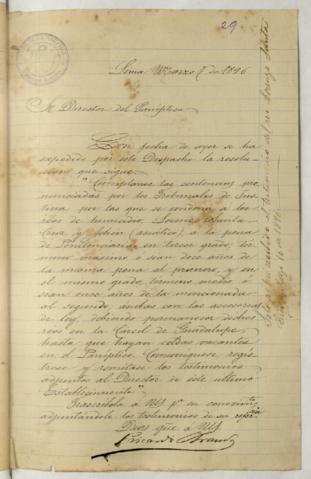 29
Lima Marzo 7 de 1896
Sr Director del Panóptico
Con fecha de ayer se ha
expedido por este Despacho la resolu-
cion que sigue:
"Cumplanse las sentencias pro-
nunciadas por los Tribunales de Jus-
ticia por las que se condena á los
reos de homicidio, Lorenzo
(asiático) á la pena
de Penitenciaría en tercer grado, tér-
mino maximo ó sean doce años de
la misma pena al primero, y en
el mismo grado, termino medio ó
sean once años de la mencionada
al segundo, ambos con las accesorias
de ley, debiendo permanecer dichos
reos en la Carcel de Guadalupe
hasta que hayan celdas vacantes
en el Panóptico. Comuníquese, regís-
trese y remítase los testimonios
adjuntos al Director de este ultimo
Establecimiento"
Trascríbola á US pª su conocimto
adjuntándole los testimonios de su referencia
Dios gue á US
Ricardo